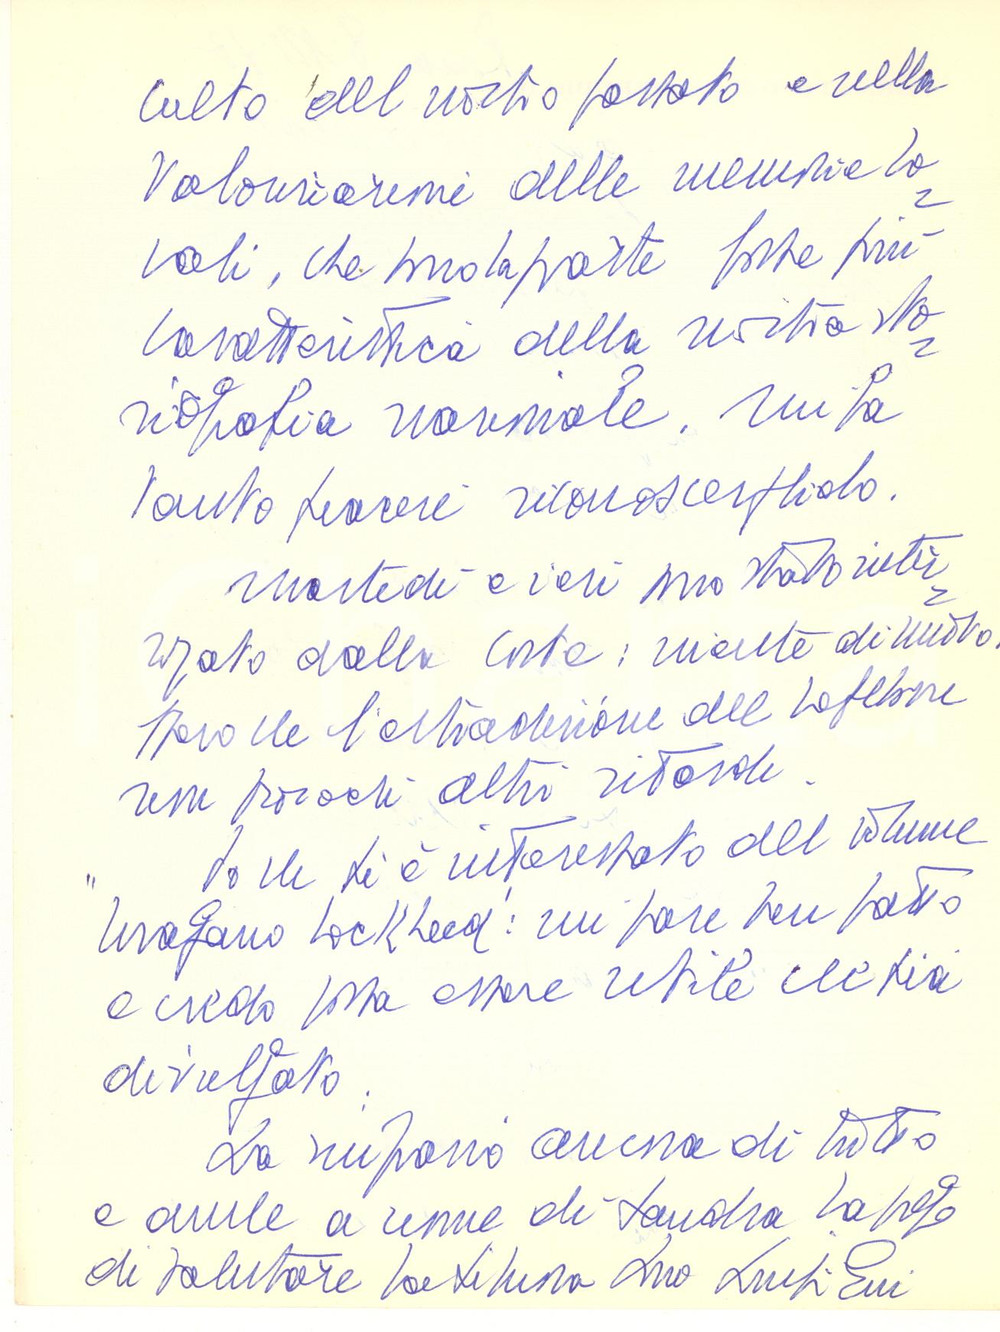 culto del nostro passato e nella
valorizzazione delle memorie lo=
cali, che sono la parte forse più
caratteristica della nostra sto=
riografia nazionale. Mi fa
tanto piacere riconoscerglielo.
Martedì e ieri sono stato inter=
rogato dalla Corte: niente di nuovo.
Spero che l'estradizione del Lefebvre
non provochi altri ritardi.
So che si è interessato del volume
"Uragano Lockheed": mi pare ben fatto
e credo possa essere utile che sia
divulgato.
La ringrazio ancora di tutto
e anche a nome di Sandra La prego
di salutare la Signora Suo Luigi Gui